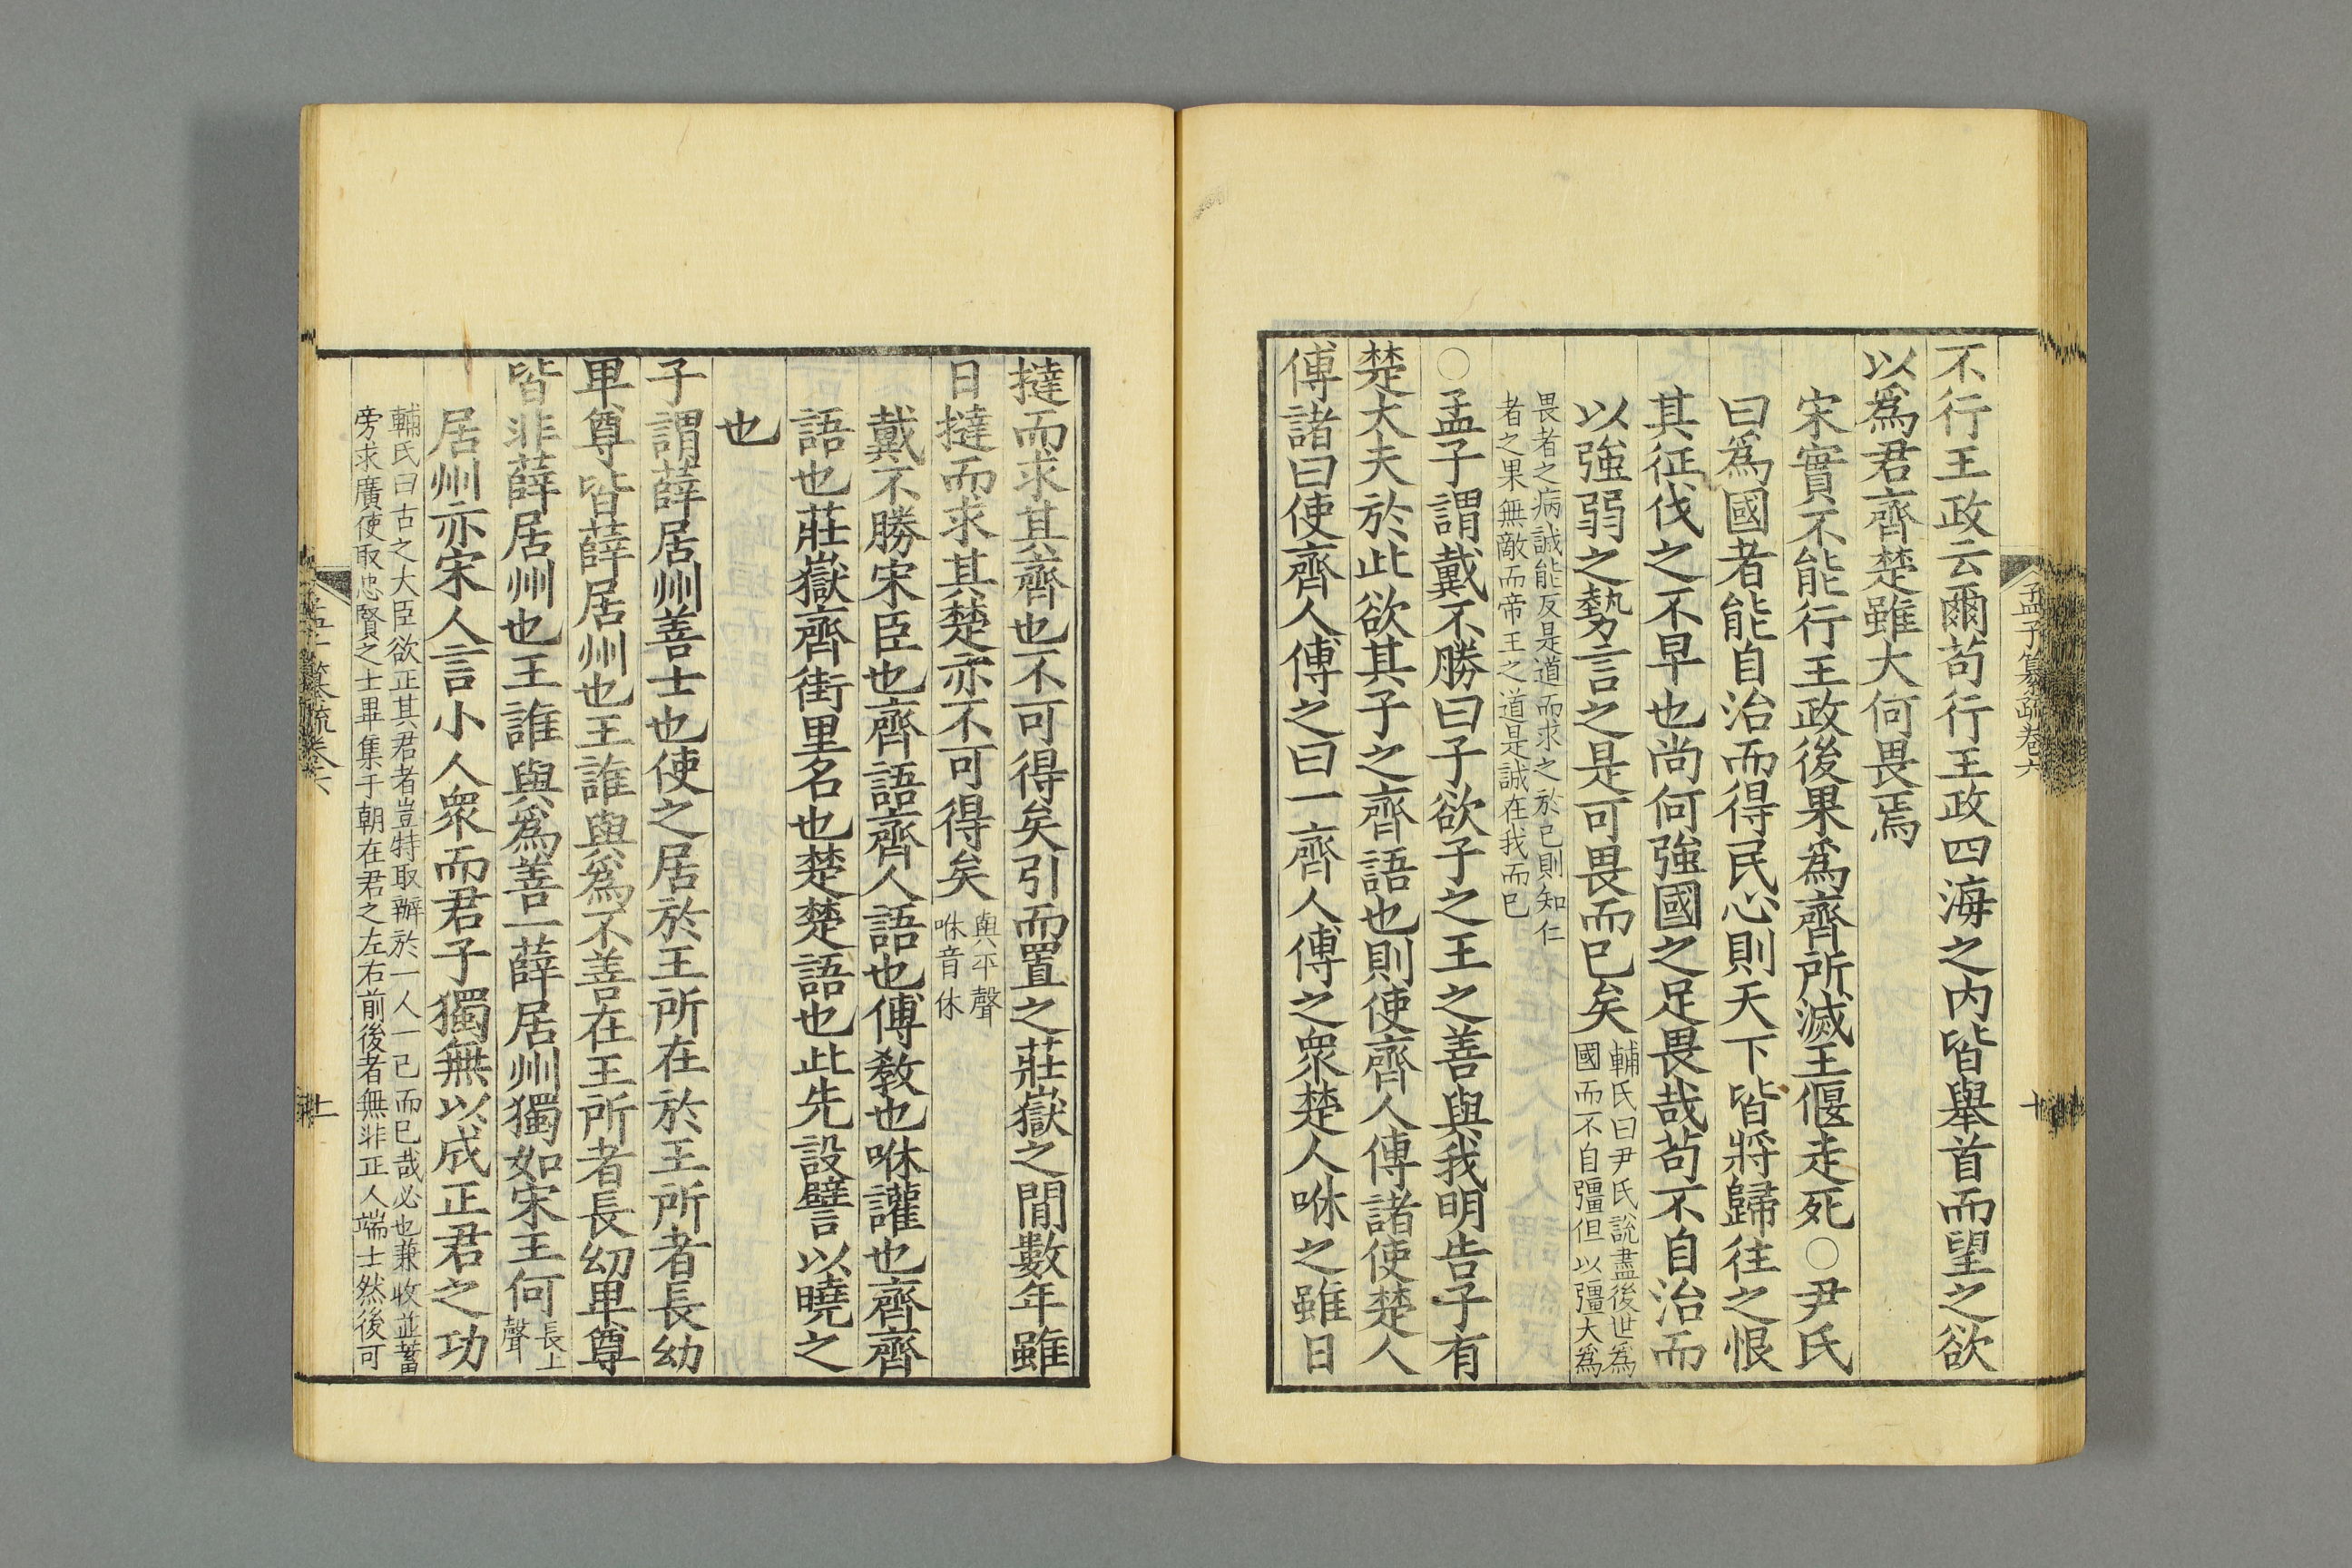 不行王政云爾苟行王政四海之内皆舉首而望之欲
以爲君齊楚雖大何畏焉
宋實不能行王政後果爲齊所滅王偃走死○尹氏
曰爲國者能自治而得民心則天下皆將歸往之恨
其征伐之不早也尚何強國之足畏哉苟不自治而
以強弱之勢言之是可畏而已矣
輔氏曰尹氏說盡後世爲
國而不自彊但以彊大爲
畏者之病誠能反是道而求之於已則知仁
者之果無敵而帝王之道是誠在我而已
○孟子謂戴不勝曰子欲子之王之善與我明告子有
楚大夫於此欲其子之齊語也則使齊人傅諸使楚人
傅諸曰使齊人傅之曰一齊人傅之衆楚人咻之雖日
孟子纂疏卷六
十
撻而求其齊也不可得矣引而置之莊嶽之間數年雖
日撻而求其楚亦不可得矣
與平聲
咻音休
戴不勝宋臣也齊語齊人語也傅教也咻讙也齊齊
語也莊嶽齊街里名也楚楚語也此先設譬以曉之
也
子謂薛居州善士也使之居於王所在於王所者長幼
卑尊皆薛居州也王誰與爲不善在王所者長幼卑尊
皆非薛居州也王誰與爲善一薛居州獨如宋王何
長上
聲
居州亦宋人言小人衆而君子獨無以成正君之功
輔氏曰古之大臣欲正其君者豈特取辦於一人一已而已哉必也兼收並蓄
旁求廣使取忠賢之士畢集于朝在君之左右前後者無非正人端士然後可
孟子纂疏卷六